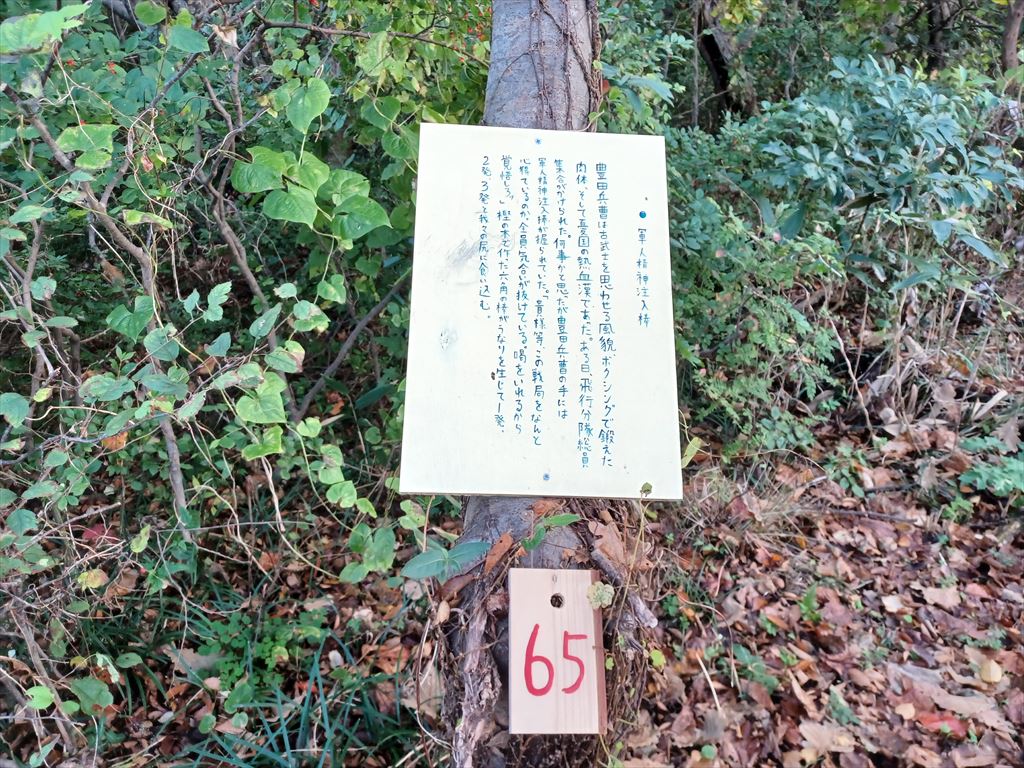 ・軍人精神注入棒
豊田兵曹は古武士を思わせる風貌、ボクシングで鍛えた
肉体、そして憂国の熱血漢であった。ある日、飛行分隊総員
集合がかけられた。何事かと思ったが豊田兵曹の手には
軍人精神注入棒が握られていた。「貴様等、この戦局をなんと
心得ているのか全員気合いが抜けている。喝をいれるから
覚悟しろ。」樫の木で作った六角の棒がうなりを生じて1発、
2発、3発と我々の尻に食い込む。
65